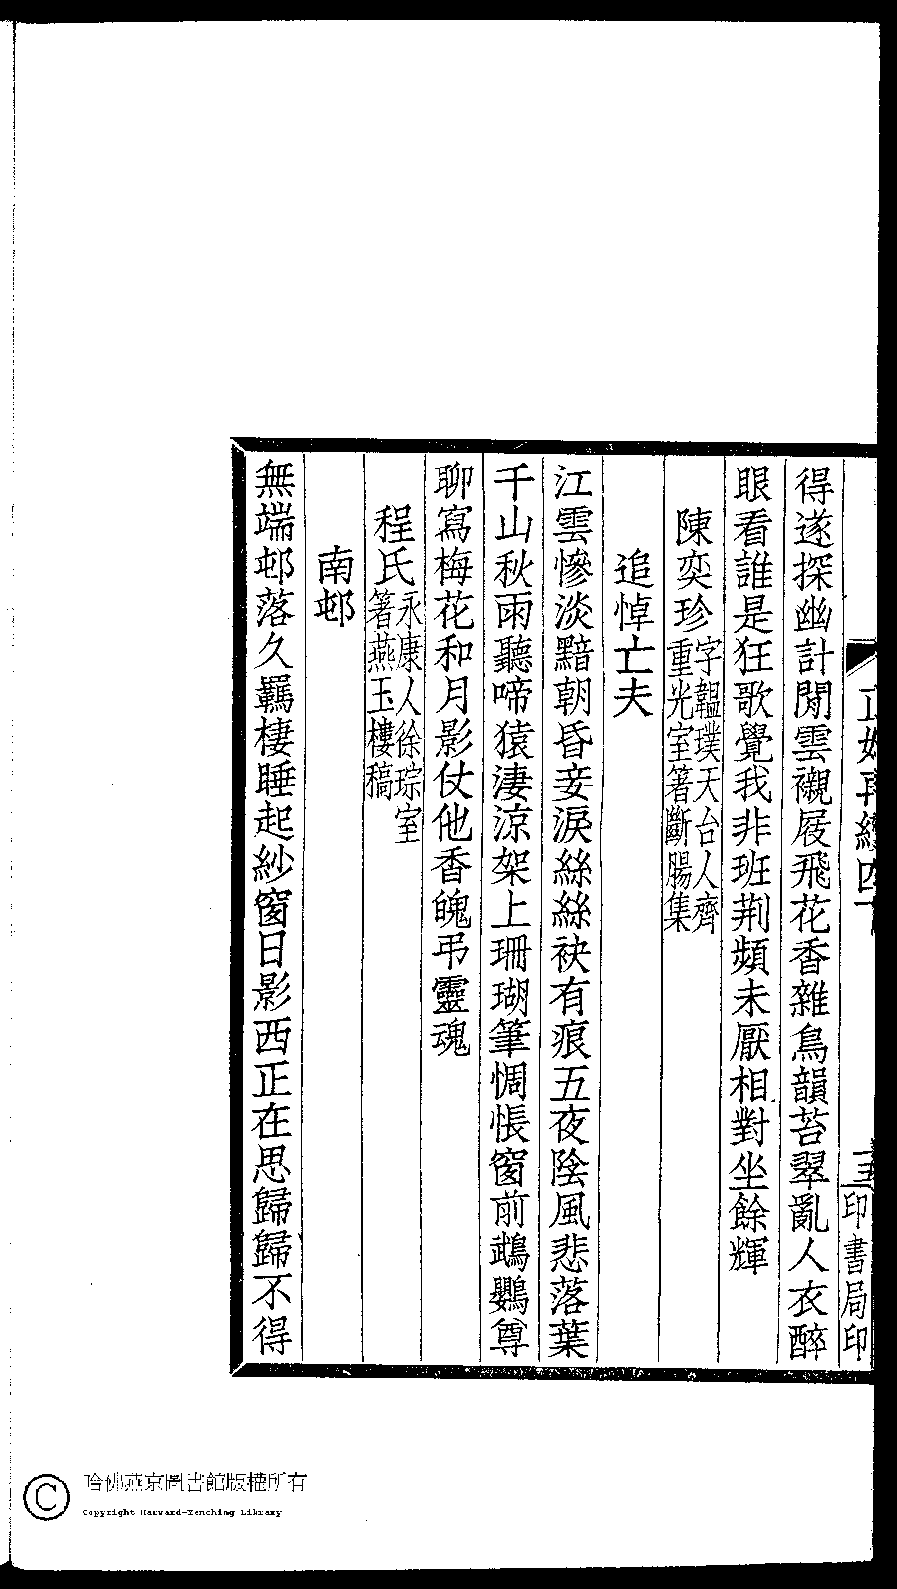 得遂探幽計閒雲襯屐飛花香雜鳥韻苔翠亂人衣醉
眼看誰是狂歌覺我非班荆頻未厭相對坐餘輝
陳奕珍字韞璞天台人齊重光室箸斷腸集
追悼亡夫
江雲慘淡黯朝昏妾淚絲絲袂有痕五夜陰風悲落葉
千山秋雨聽啼猿淒涼架上珊瑚筆惆悵窗前鸚鵡尊
聊寫梅花和月影仗他香魄弔靈魂
程氏永康人徐琮室箸燕玉樓稿
南邨
無端邨落久羈棲睡起紗窗日影西正在思歸歸不得
哈佛燕京圖書館版權所有
Copyright Harvard-Yenching Library